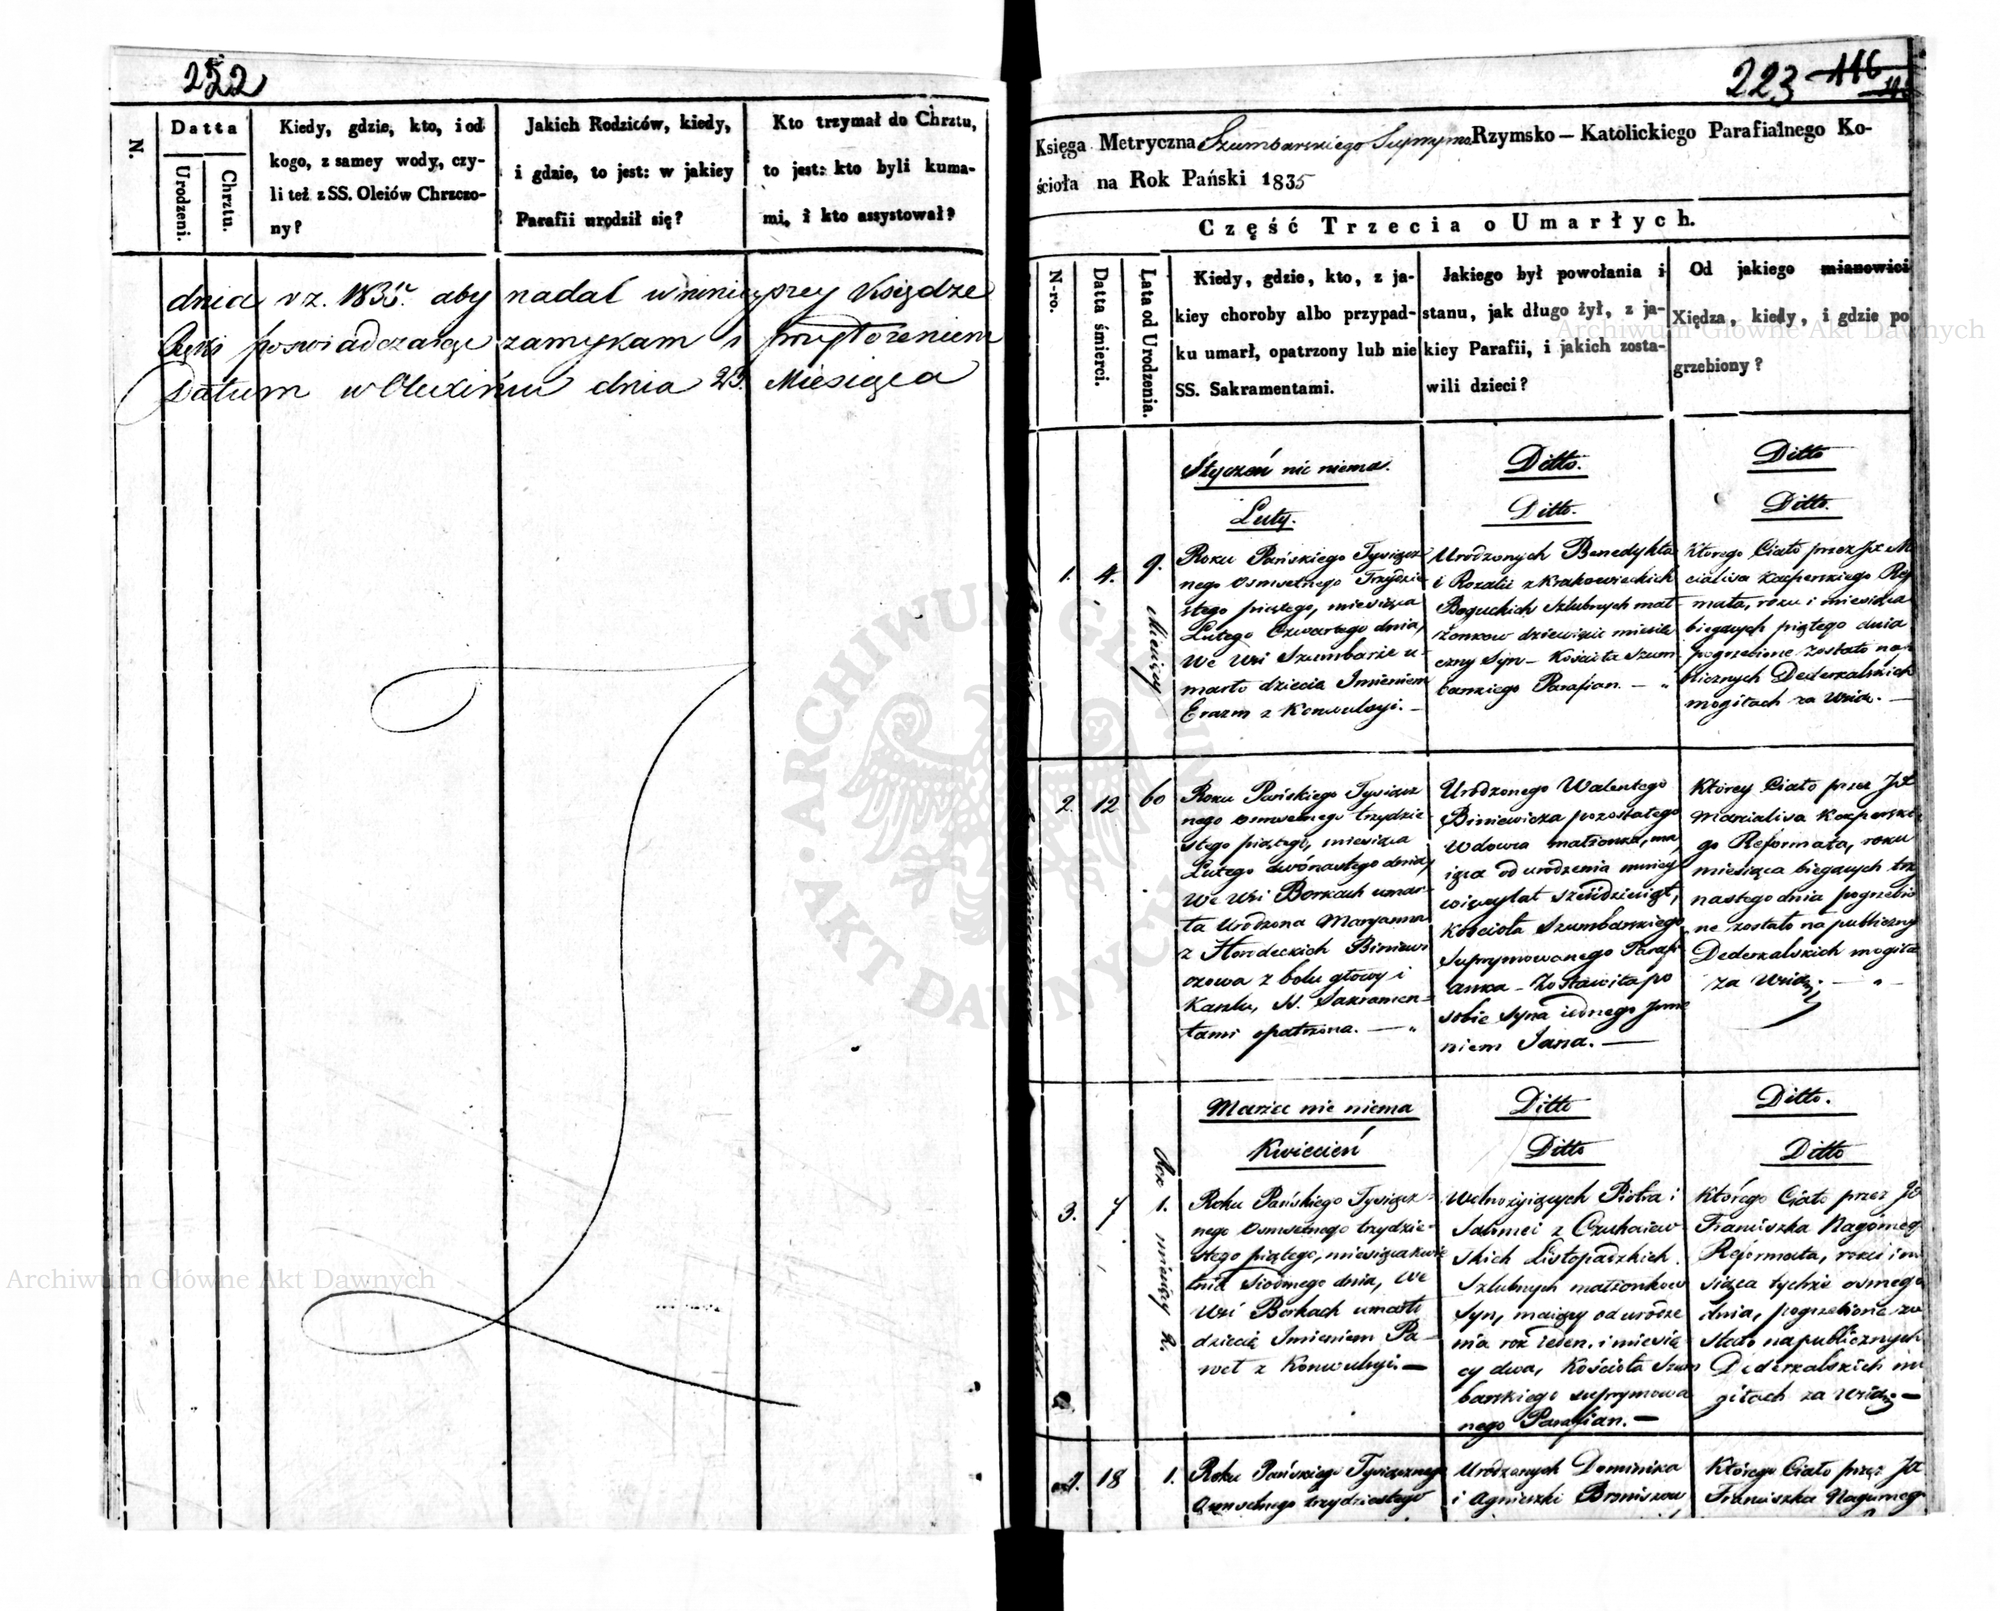 222
N.
Datta
Urodzeni.
Chrztu.
Kiedy, gdzie, kto, i od
kogo, z samey wody, czy-
li też z SS. Oleiów Chrzczo-
ny?
Jakich Rodziców, kiedy,
i gdzie, to jest: w jakiey
Parafii urodził się?
Kto trzymał do Chrztu,
to jest: kto byli kuma-
mi, i kto assystował?
dnia rz. 1835. aby nadal w niniejszey Księdze
poswiadczając zamykam i
Datum w Olexińcu dnia 23. Miesiąca
223 116
Księga Metryczna Szumbarskiego Rzymsko-Katolickiego Parafialnego Ko-
ścioła na Rok Pański 1835
Część Trzecia o Umarłych.
N-ro.
Datta śmierci.
Lata od Urodzenia.
Kiedy, gdzie, kto, z ja-
kiey choroby albo przypad-
ku umarł, opatrzony lub nie
SS. Sakramentami.
Jakiego był powołania i
stanu, jak długo żył, z ja-
kiey Parafii, i jakich zosta-
wili dzieci?
Od jakiego mianowici
Xiędza, kiedy, i gdzie po
grzebiony?
Styczeń nic niema.
Ditto.
Ditto
Luty.
Ditto.
Ditto.
1.
4.
9. Miesięcy
Roku Pańskiego Tysiącz
nego Osmsetnego Trzydzie
stego piątego, miesiąca
Lutego Czwartego dnia,
We Wsi Szumbarze u-
marło dziecie Imieniem
Erazm z Konwulsyi.-
Urodzonych Benedykta
i Rozalii z Krakowieckich
Boguckich Szlubnych mał
żonkow dziewięcio miesię
czny Syn - Kościoła Szum
barskiego Parafian. - "
Ktorego Ciało przez Jx M
cialisa Kacperskiego Ref
mata, roku i miesiąca
bieżących piątego dnia
pogrzebione zostało na
blicznych Dederkalskich
mogiłach za Wsią. -
2.
12
60
Roku Pańskiego Tysiącz
nego osmsetnego trzydzie
stego piątego, miesiąca
Lutego dwónastego dnia,
We Wsi Borkach umar-
ła Urodzona Maryanna
z Horodeckich Biniewi
czowa z bolu głowy i
Kaszlu, SS. Sakramen-
tami opatrzona. - "
Urodzonego Walentego
Biniewicza pozostałego
Wdowca małżonka, ma
iąca od urodzenia mniey
więcey lat sześćdziesiąt,
Kościoła Szumbarskiego
Suprymowanego Parafi
anka - Zostawiła po
sobie Syna iednego Jmie
niem Jana. -
Którey Ciało przez Jx
Marcialisa Kacperskie
go Reformata, roku
miesiąca bieżących trzy
nastego dnia pogrzebio
ne zostało na publiczny
Dederkalskich mogiła
za Wsią. - " -
Marzec nic niema
Ditto
Ditto.
Kwiecień
Ditto
Ditto
3.
7
Rok 1. miesięcy 2.
Roku Pańskiego Tysiącz-
nego Osmsetnego trzydzie-
stego piątego, miesiąca kwie
tnia Siodmego dnia, We
Wsi Borkach umarło
dziecie Imieniem Pa-
weł z Konwulsyi. -
Wolnożyiących Piotra i
Salomei z Czuhaiew
skich Listopadzkich
Szlubnych małżonkow
Syn, maiący od urodze
nia rok ieden, i miesię
cy dwa, Kościoła Szum
barskiego suprymowa
nego Parafian. -
Którego Ciało przez Jx
Franciszka Nagórneg
Reformata, roku i m
siąca tychże osmego
dnia, pogrzebione zo
stało na publicznych
Dederkalskich mo
giłach za Wsią -
4.
18
1.
Roku Pańskiego Tysiącznego
Osmsetnego trzydziestego
Urodzonych Dominika
i Agnieszki Broniszow
Którego Ciało przez Jx
Franciszka Nagurnego
Archiwum Główne Akt Dawnych
Archiwum Główne Akt Dawnych
ARCHIWUM GŁÓWNE · AKT DAWNYCH